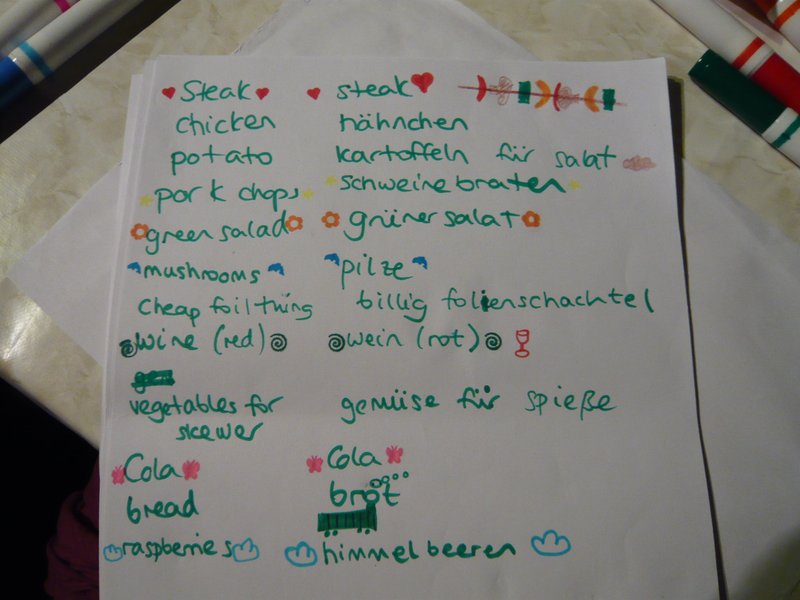 Steak steak
chicken hähnchen
potato kartoffeln für salat
pork chops schweinebraten
green salad grüner salat
mushrooms pilze
cheap foil thing billig folienschachtel
wine (red) wein (rot)
vegetables for gemüse für spieße
skewer
Cola Cola
bread brot
raspberries himmelbeeren